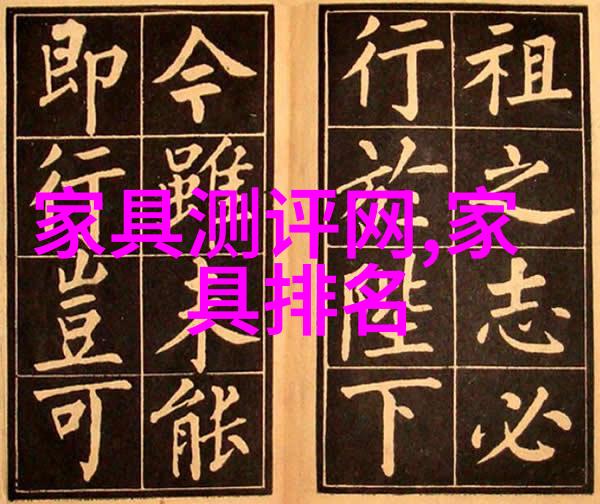 祖之志必
行於陛下
今雖未能
即行豈可
家具测评网,家
具排名